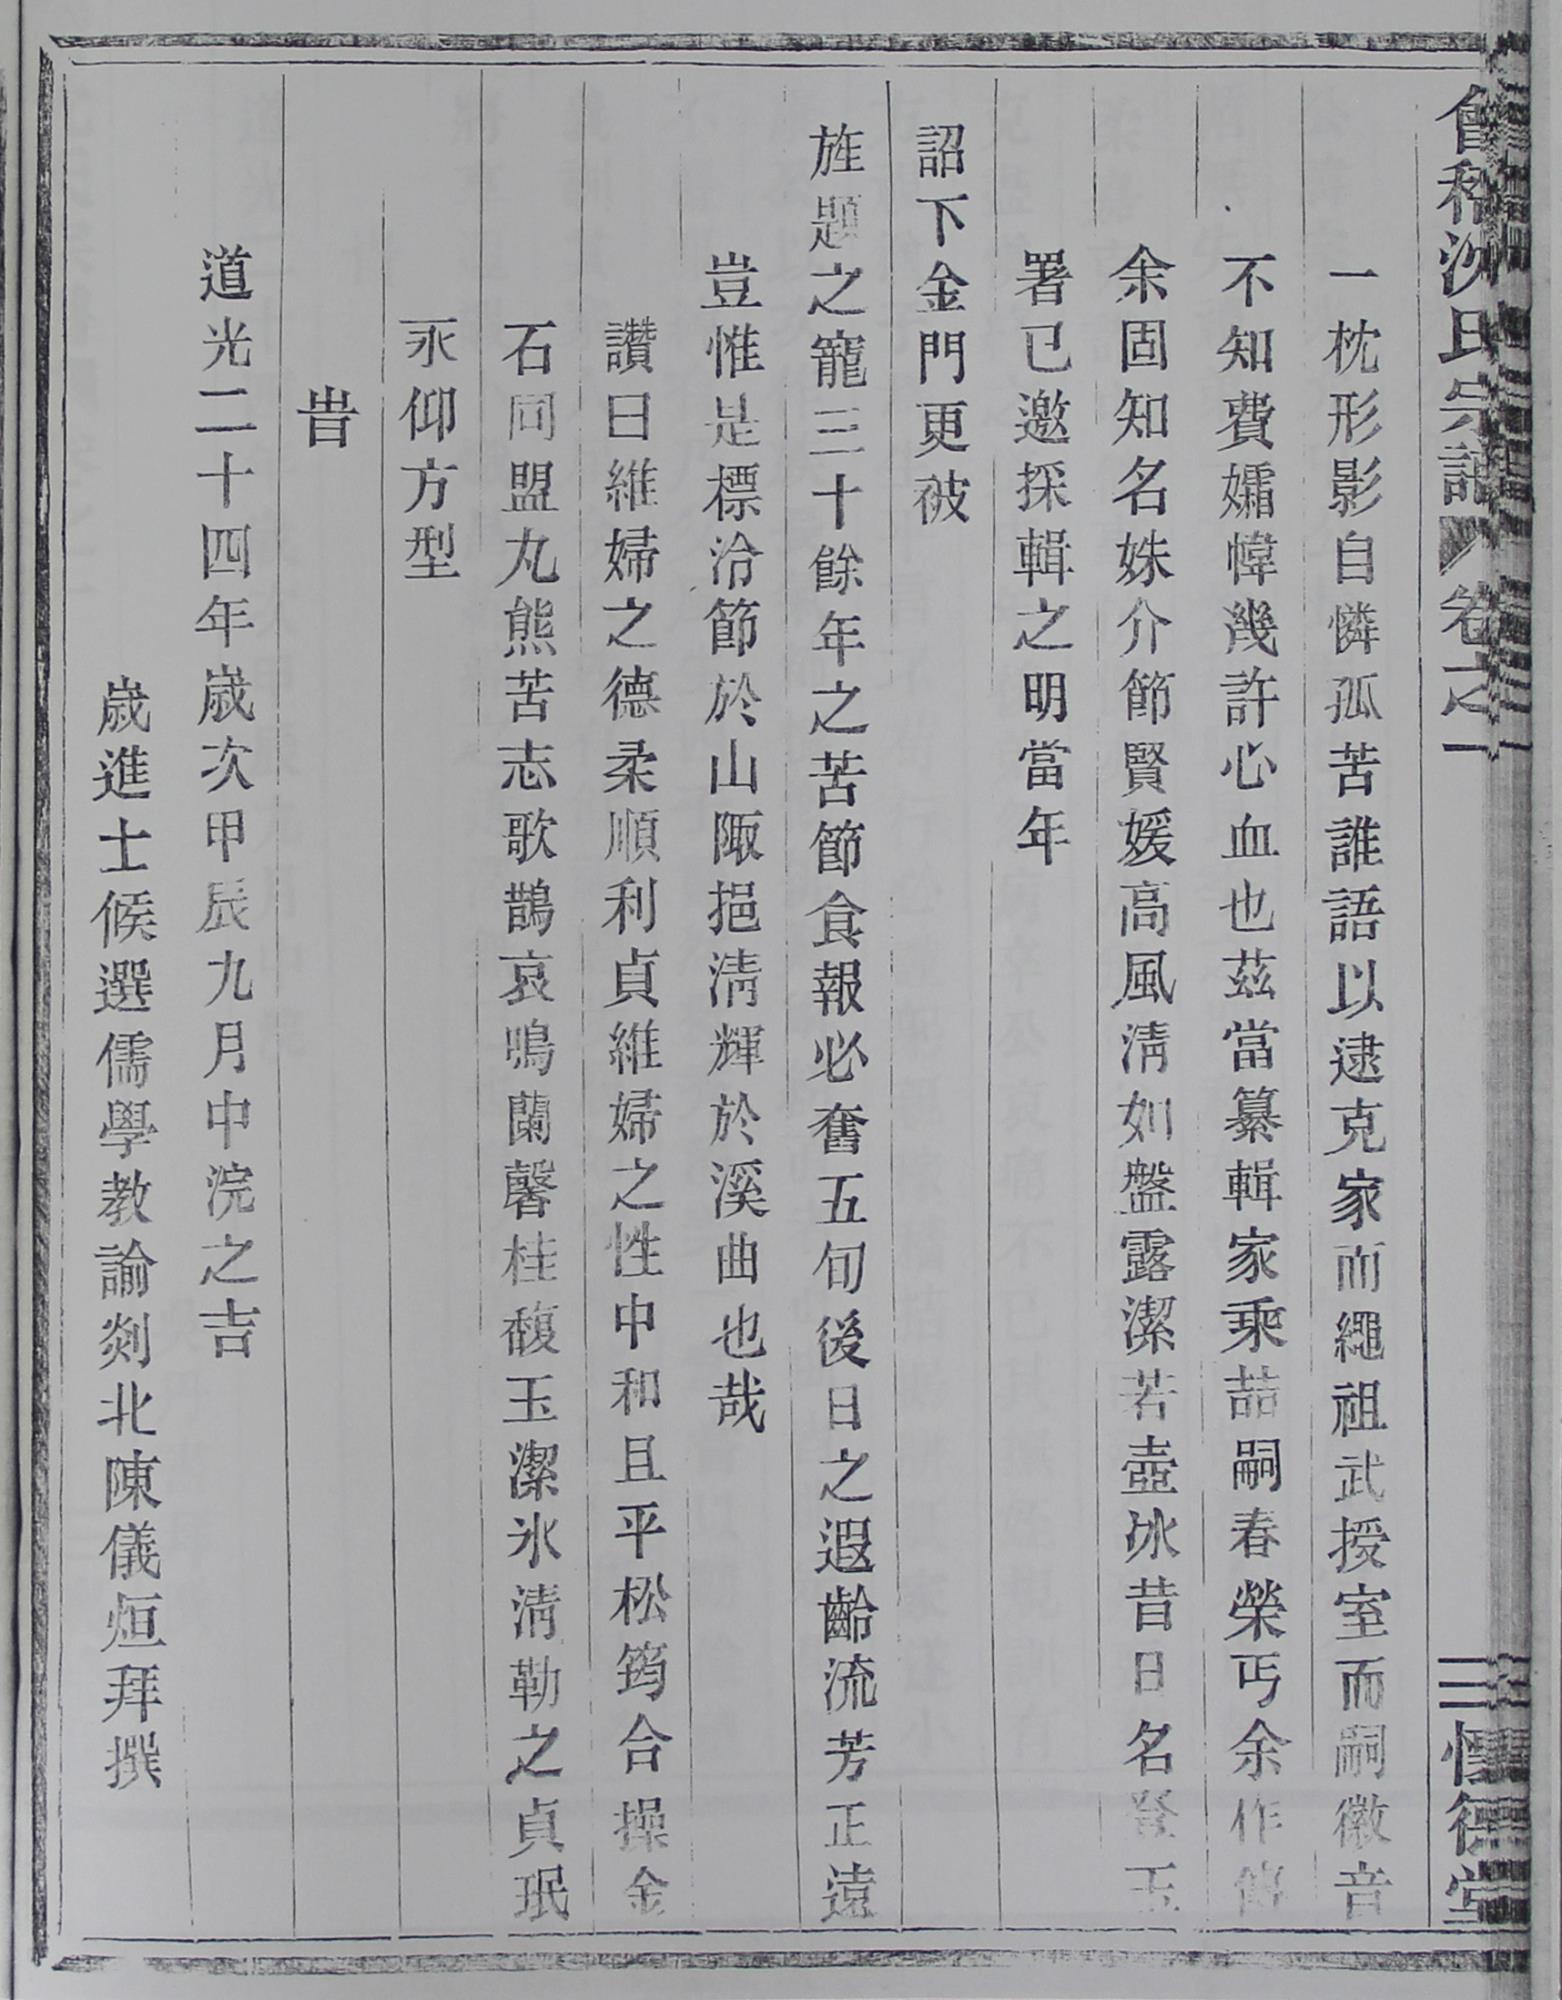 會稽沈氏宗譜 卷之一 懷德堂
一枕形影自憐孤苦誰語以逮克家而繩祖武授室而嗣徽音
不知費孀幃幾許心血也茲當纂輯家乘喆嗣春榮丐余作傳
余固知名姝介節賢媛高風淸如盤露潔若壺冰昔日名登玉
署已邀採輯之明當年
詔下金門更被
旌題之寵三十餘年之苦節食報必奮五旬後日之遐齡流芳正遠
豈惟是標洽節於山陬挹淸輝於溪曲也哉
讚曰維婦之德柔順利貞維婦之性中和且平松筠合操金
石同盟丸熊苦志歌鵲哀鳴蘭馨桂馥玉潔氷淸勒之貞珉
永仰方型
旹
道光二十四年歲次甲辰九月中浣之吉
歲進士候選儒學教諭剡北陳儀烜拜撰